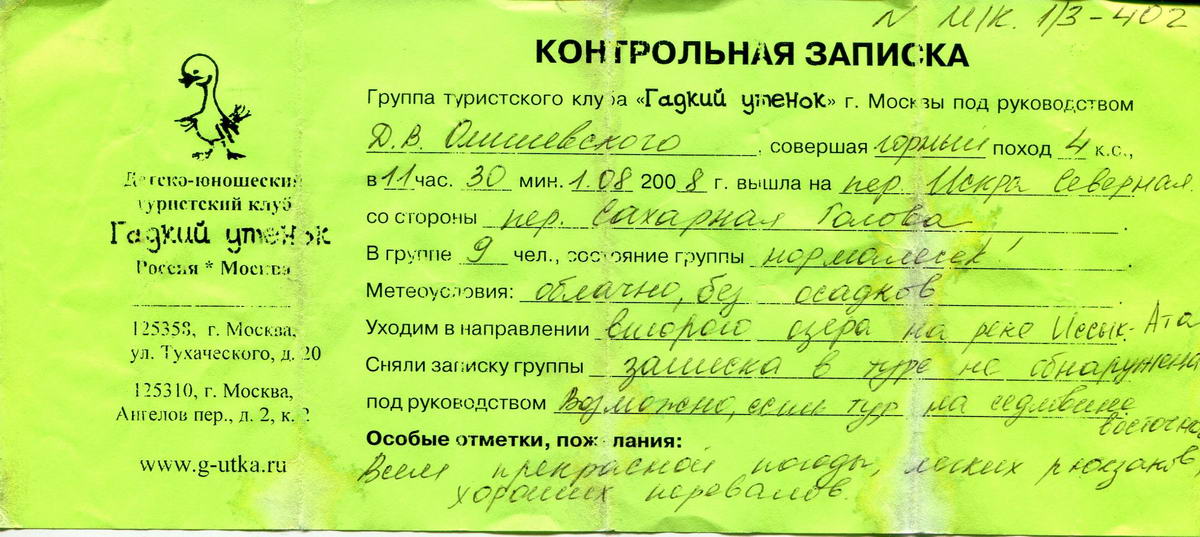 N М/К. 1/3-402
КОНТРОЛЬНАЯ ЗАПИСКА
Группа туристского клуба «Гадкий утенок» г. Москвы под руководством
Д.В. Олишевского, совершая горный поход 4 к.с.,
в 11 час. 30 мин. 1.08 2008 г. вышла на пер. Искра Северная
со стороны пер. Сахарная Голова.
В группе 9 чел., состояние группы нормалесек!
Метеоусловия: облачно, без осадков
Уходим в направлении второго озера на реке Иссык-Ата
Сняли записку группы записка в туре не обнаружена
под руководством Возможно, есть тур на седловине
восточно
Особые отметки, пожелания:
Всем прекрасной погоды, легких рюкзаков
хороших перевалов.
Детско-юношеский
туристский клуб
Гадкий утенок
Россия * Москва
125358, г. Москва,
ул. Тухаческого, д. 20
125310, г. Москва,
Ангелов пер., д. 2, к. 2
www.g-utka.ru